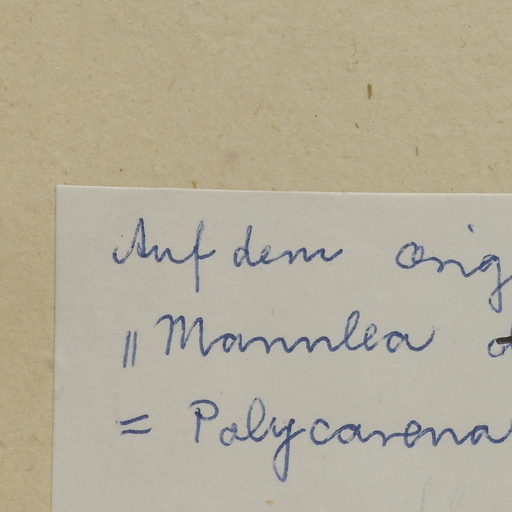 Auf dem orig
" Mannlea
= Polycarena